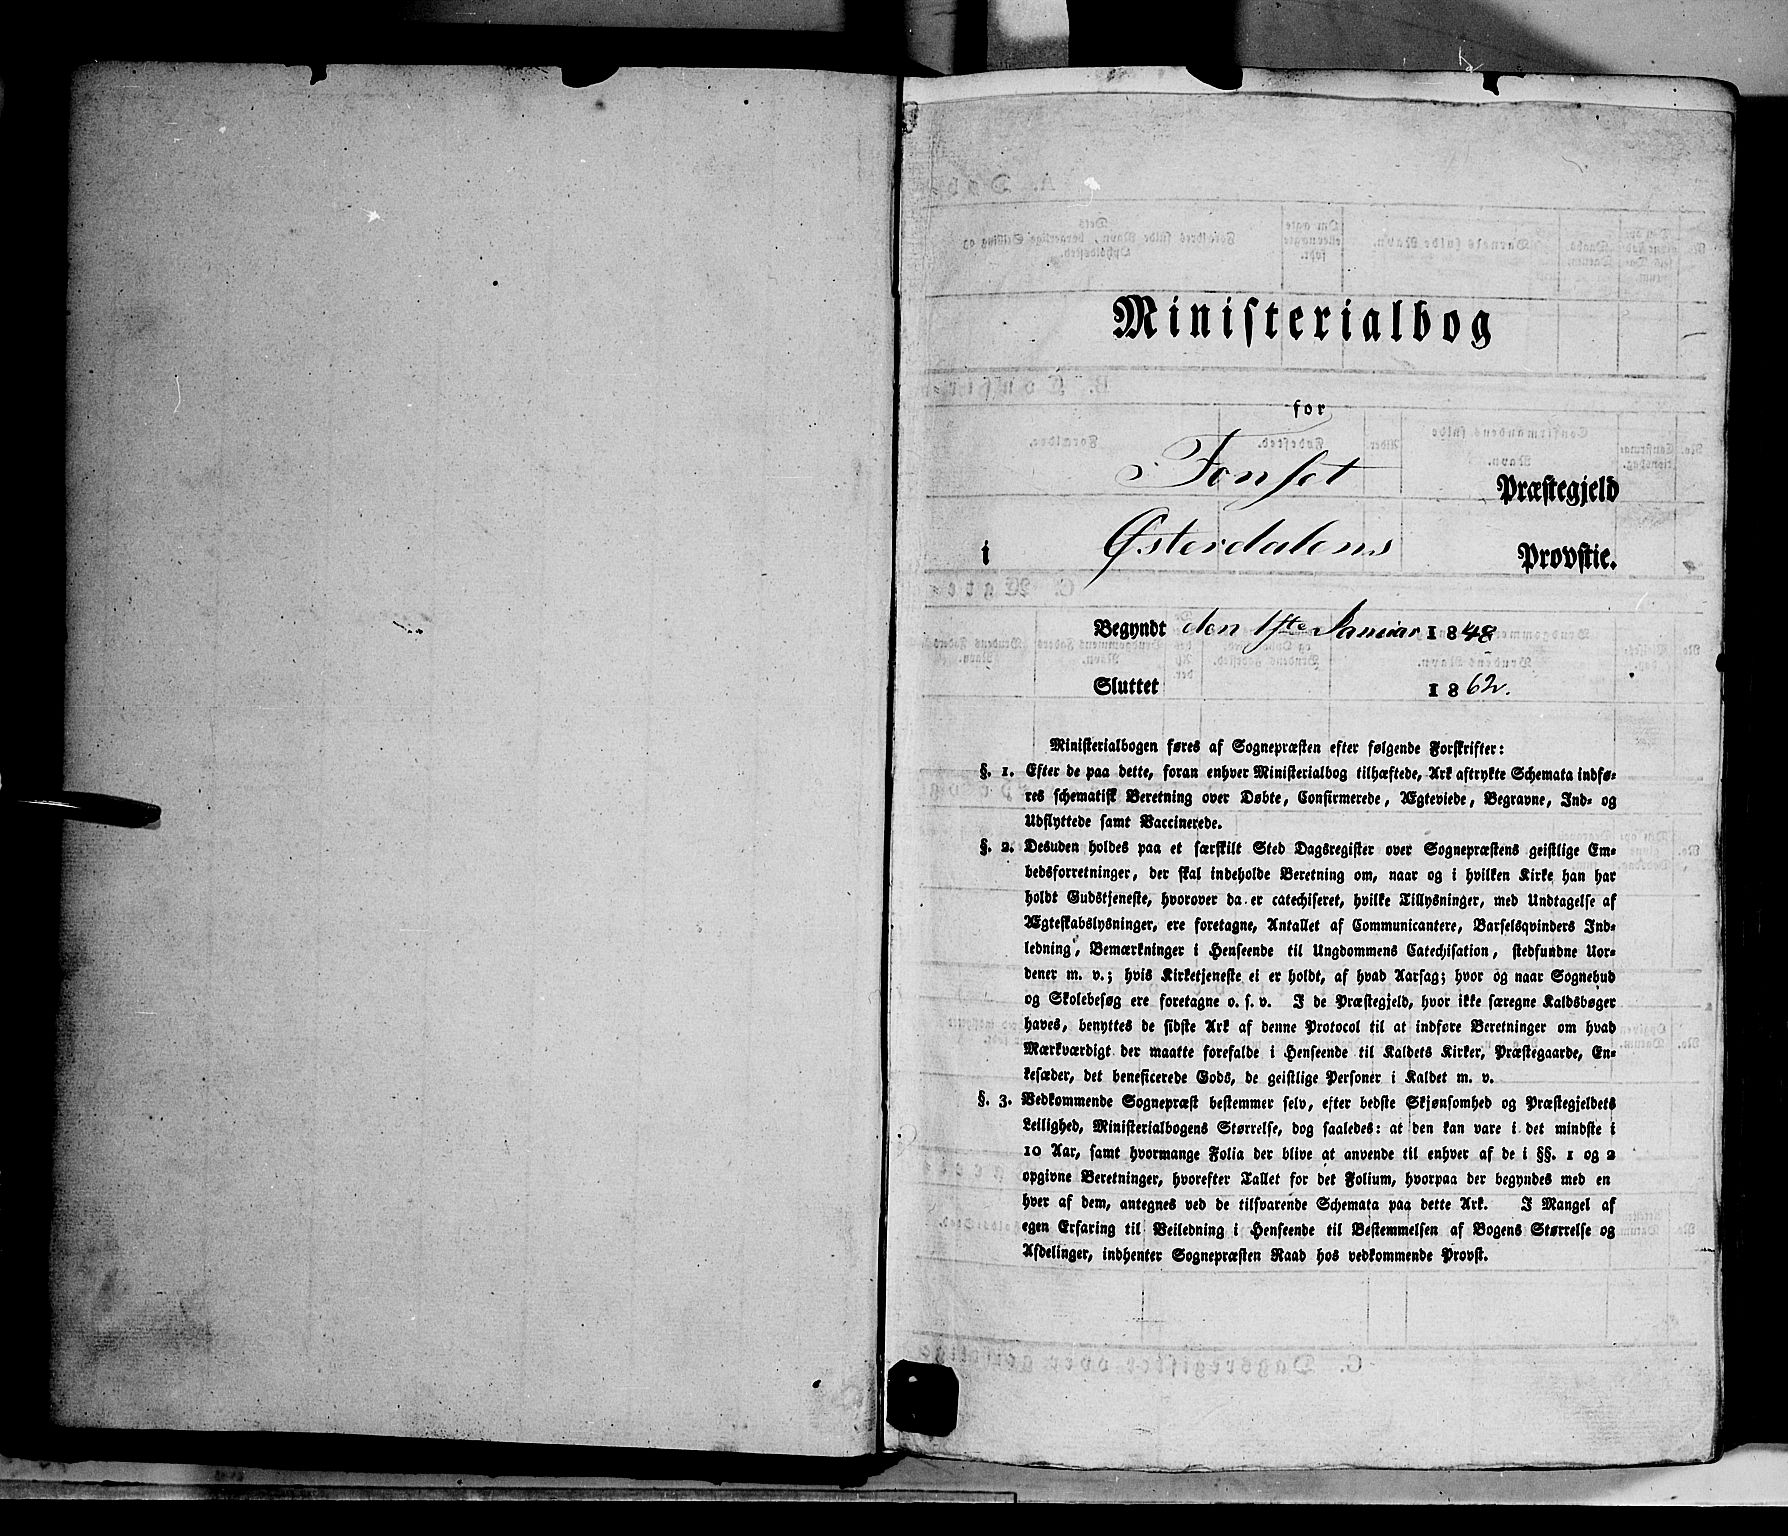 Ministerialbog
for
Tonset Præstegjeld
i Østerdalens Provstie.
Begyndt den 1ste Januar 1848
Sluttet 1862.
Ministerialbogen føres af Sognepræsten efter følgende Forskrifter:
§. 1. Efter de paa dette, foran enhver Ministerialbog tilhæftede, Ark aftrykte Schemata indfø-
res schematisk Beretning over Døbte, Confirmerede, Ægteviede, Begravne, Ind- og
Udflyttede samt Vaccinerede.
§. 2. Desuden holdes paa et særskilt Sted Dagsregister over Sognepræstens geistlige Em-
bedsforretninger, der skal indeholde Beretning om, naar og i hvilken Kirke han har
holdt Gudstjeneste, hvorover da er catechiseret, hvilke Tillysninger, med Undtagelse af
Ægteskabslysninger, ere foretagne, Antallet af Communicantere, Barselqvinders Ind-
ledning, Bemærkninger i Henseende til Ungdommens Catechisation, stedfundne Uor-
dener m. v.; hvis Kirketjeneste ei er holdt, af hvad Aarsag; hvor og naar Sognebud
og Skolebesøg ere foretagne o. s. v. I de Præstegjeld, hvor ikke særegne Kaldsbøger
haves, benyttes de sidste Ark af denne Protocol til at indføre Beretninger om hvad
Mærkværdigt der maatte forefalde i Henseende til Kaldets Kirker, Præstegaarde, En-
kesæder, det beneficerede Gods, de geistlige Personer i Kaldet m. v.
§. 3. Vedkommende Sognepræst bestemmer selv, efter bedste Skjønsomhed og Præstegjeldets
Leilighed, Ministerialbogens Størrelse, dog saaledes: at den kan vare i det mindste i
10 Aar, samt hvormange Folia der blive at anvende til enhver af de i §§. 1 og 2
opgivne Beretninger, hvorefter Tallet for det Folium, hvorpaa der begyndes med en
hver af dem, antegnes ved de tilsvarende Schemata paa dette Ark. I Mangel af
egen Erfaring til Veiledning i Henseende til Bestemmelsen af Bogens Størrelse og
Afdelinger, indhenter Sognepræsten Raad hos vedkommende Provst.